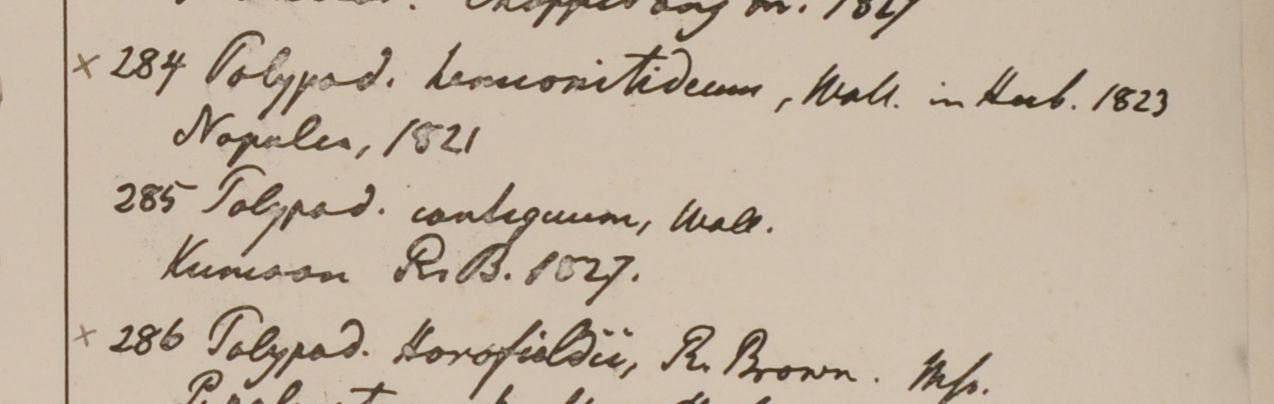 1827
× 284 Polypod. hemionitideum, Wall. in Herb. 1823
Napalia, 1821
285 Polypod. contiguum, Wall.
Kumaon R. B. 1827.
× 286 Polypod. Horsfieldii, R. Brown. Mss.